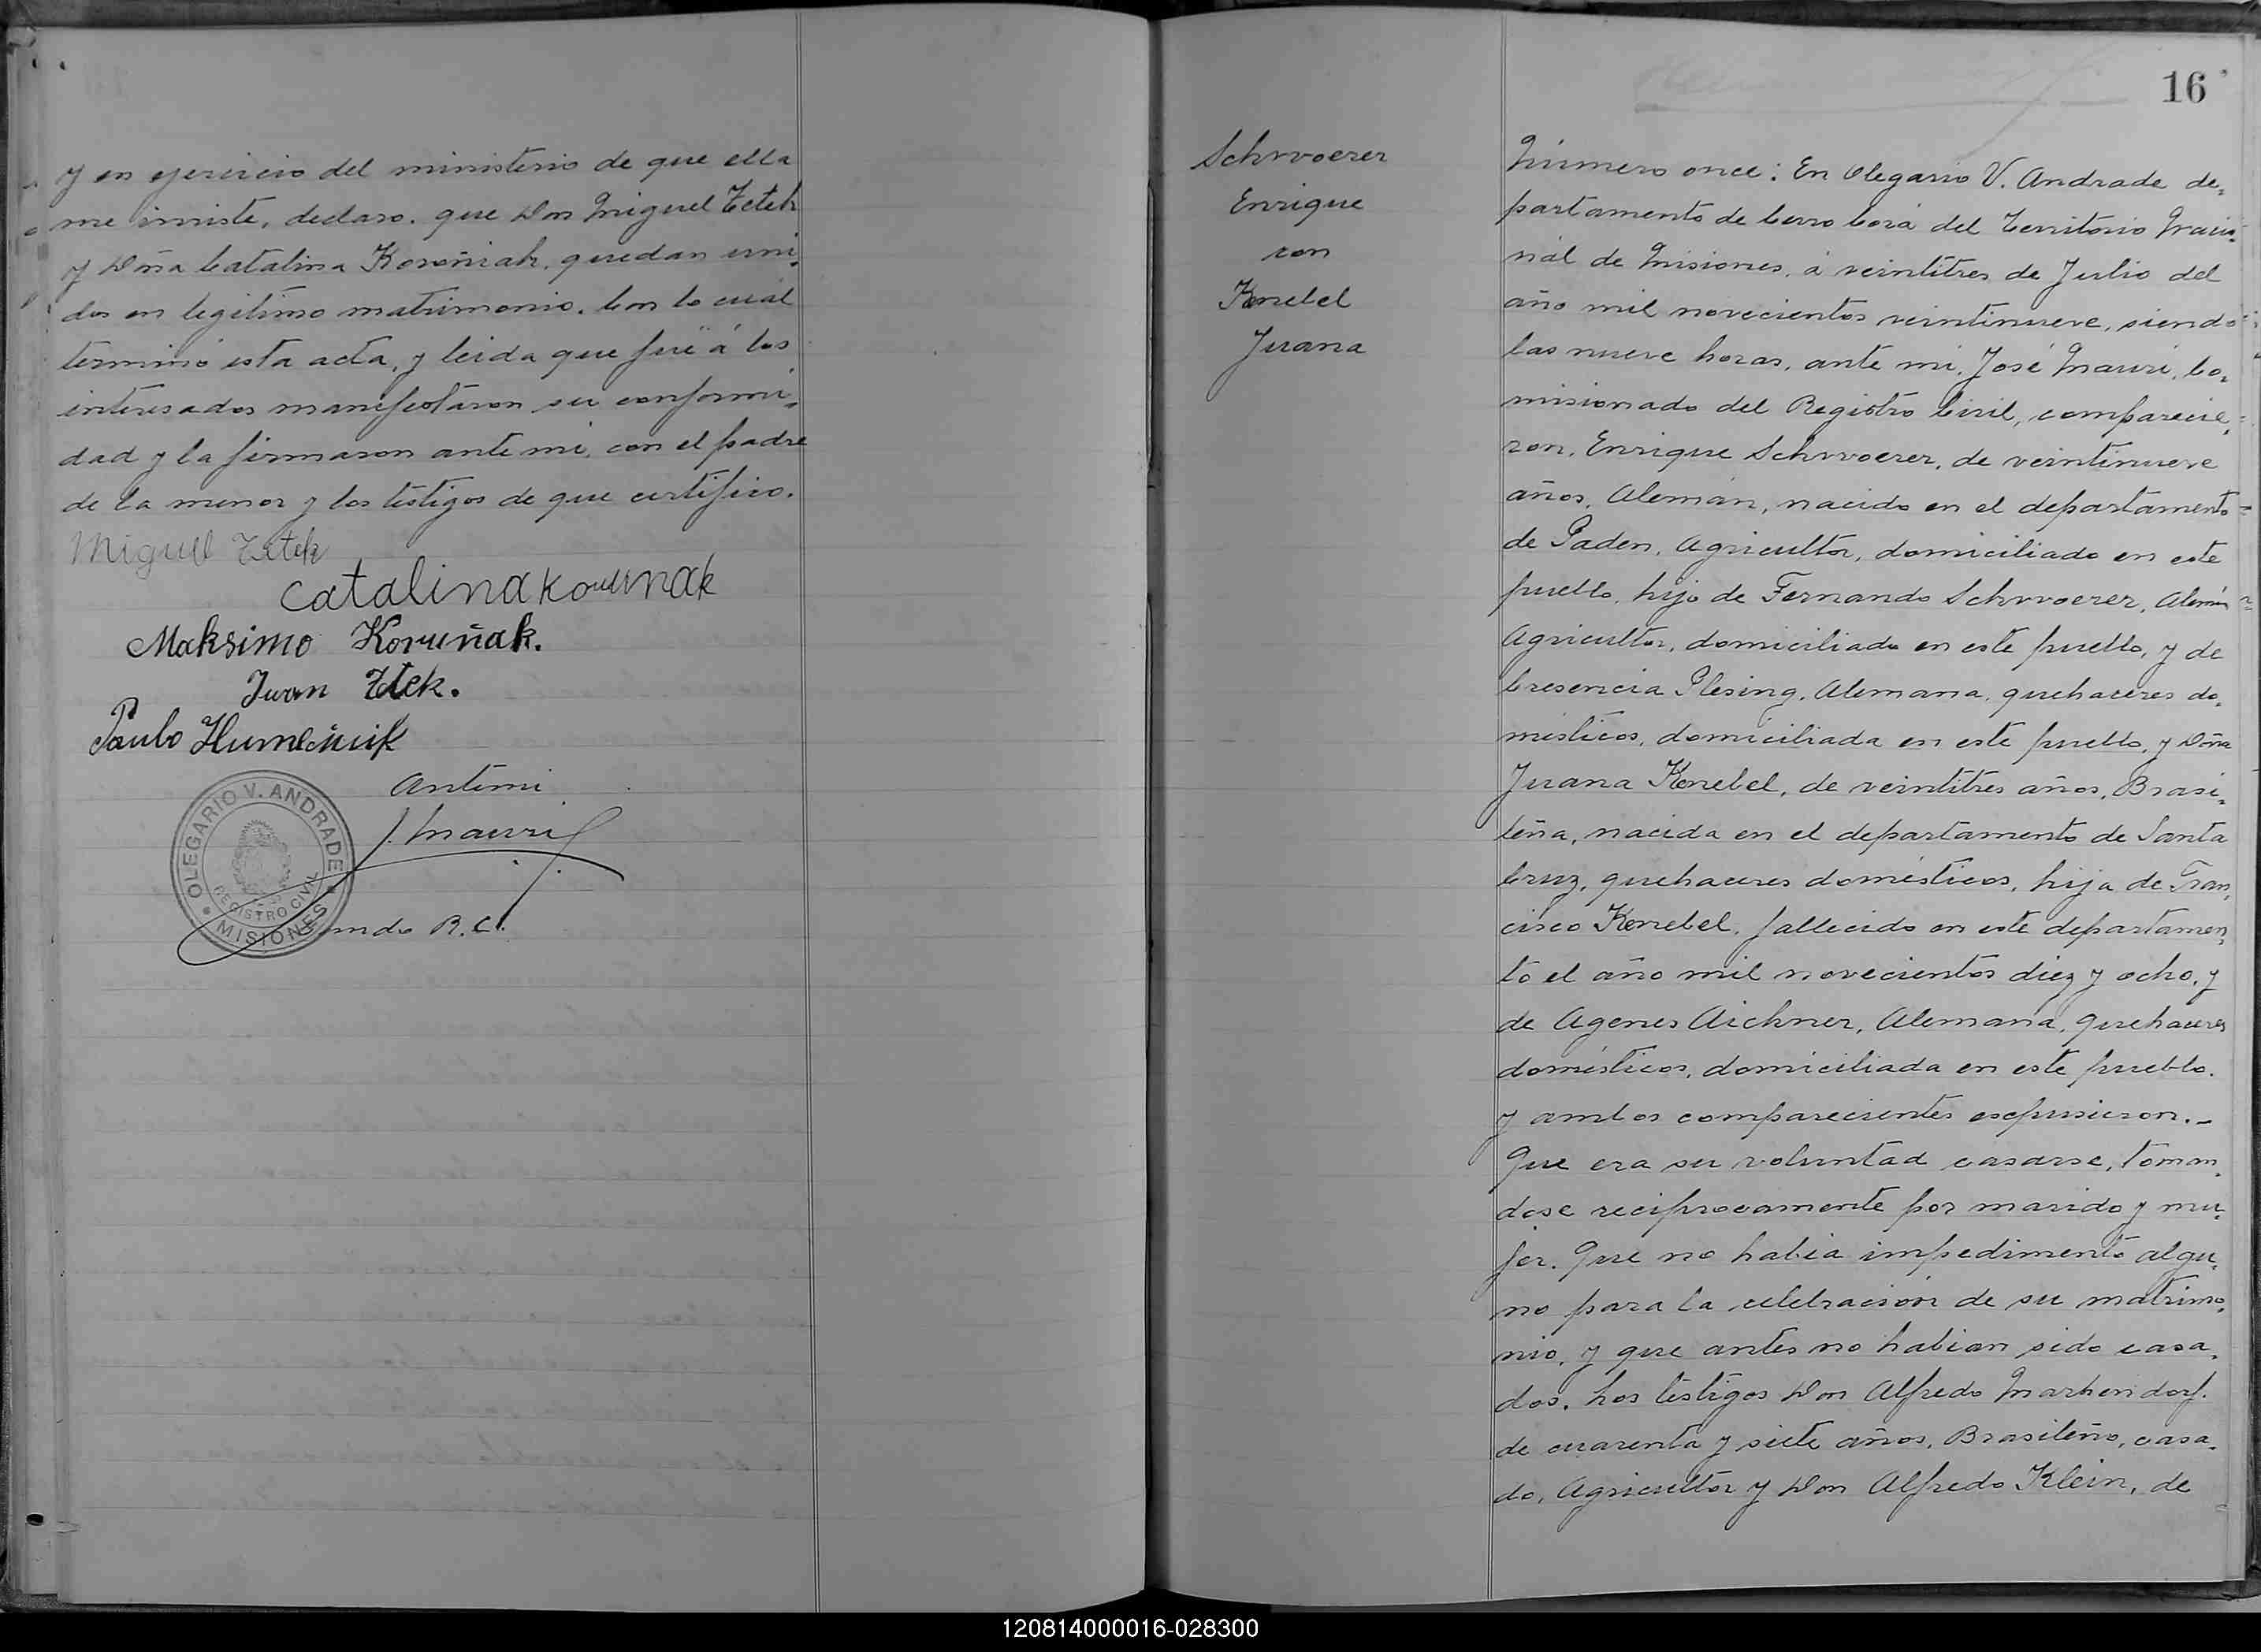 y en ejercicio del ministerio de que ella
me inviste, declaro. que Don Miguel Zetek
y Doña Catalina Koroñiak, quedan uni,
dos en legitimo matrimonio. Con lo cual
terminó esta acta, y leida que fué á los
interesados manifestaron su conformi,
dad y la firmaron ante mi, con el padre
de la menor y los testigos de que certifico.
Miguel
Catalina
Maksimo Koruñak.
Juan Ztek.
Paulo
Antemi
J. Mauri
OLEGARIO V. ANDRADE
REGISTRO CIVIL
MISIONES
R. C.
16
Schwoerer
Enrique
con
Knebel
Juana
Número once: En Olegario V. Andrade de,
partamento de Cerro Corá del Territorio Nacio,
nal de Misiones, á veintitres de Julio del
año mil novecientos veintinueve, siendo
las nueve horas, ante mi, José Mauri, Co,
misionado del Registro Civil, comparecie,
ron, Enrique Schwoerer, de veintinueve
años, Alemán, nacido en el departamento
de Baden, Agricultor, domiciliado en este
pueblo, hijo de Fernando Schwoerer, Alemán
Agricultor, domiciliado en este pueblo, y de
Cresencia Plesing, Alemana, quehaceres do,
mésticos, domiciliada en este pueblo, y Doña
Juana Knebel, de veintitres años, Brasi,
leña, nacida en el departamento de Santa
Cruz, quehaceres domésticos, hija de Fran,
cisco Knebel, fallecido en este departamen,
to el año mil novecientos diez y ocho, y
de Agenes Aichner, Alemana, quehaceres
domésticos, domiciliada en este pueblo.
y ambos comparecientes expusieron.-
Que era su voluntad casarse, toman,
dose reciprocamente por marido y mu,
jer. Que no habia impedimento algu,
no para la celebración de su matrimo,
nio, y que antes no habian sido casa,
dos. Los testigos Don Alfredo Markendorf.
de cuarenta y siete años, Brasileño, casa,
do, Agricultor y Don Alfredo Klein, de
120814000016-028300